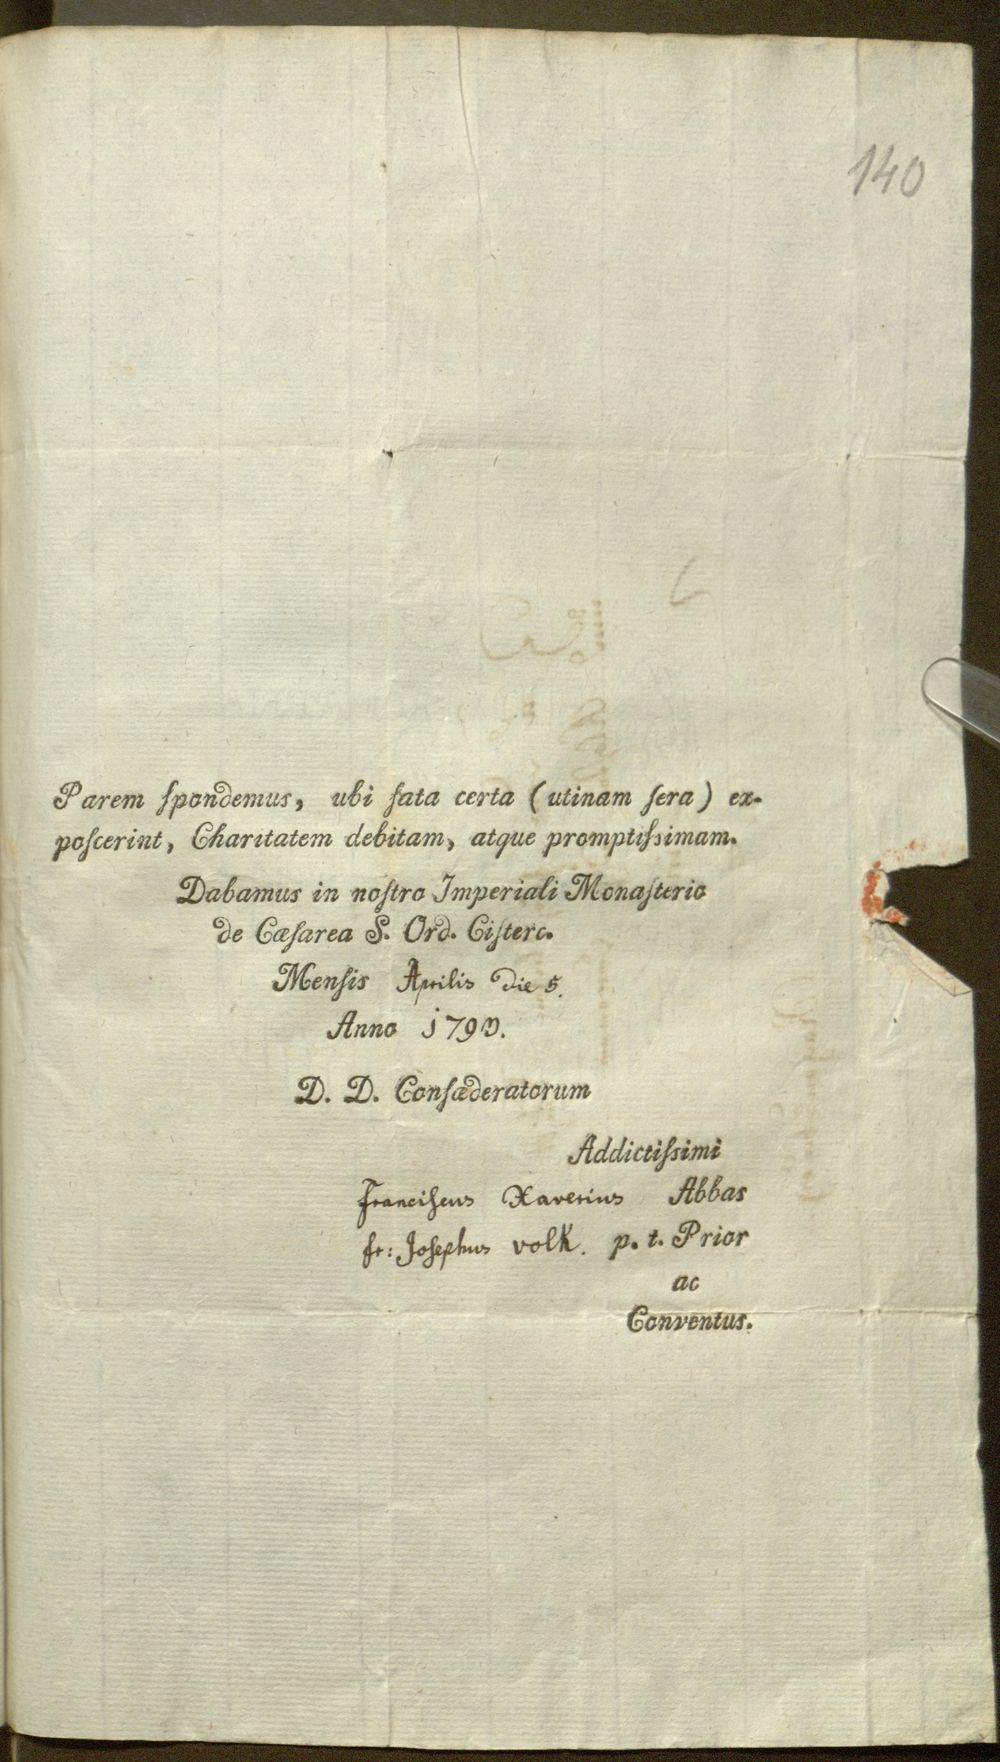 140
Parem ſpondemus, ubi fata certa (utinam ſera) ex-
poſcerint, Charitatem debitam, atque promptiſsimam.
Dabamus in noſtro Imperiali Monaſterio
de Cæſarea S. Ord. Ciſterc.
Menſis Aprilis die 5.
Anno 1790.
D. D. Confæderatorum
Addictiſsimi
Franciſcus Xaverius Abbas
fr: Joſephus Volk. p. t. Prior
ac
Conventus.